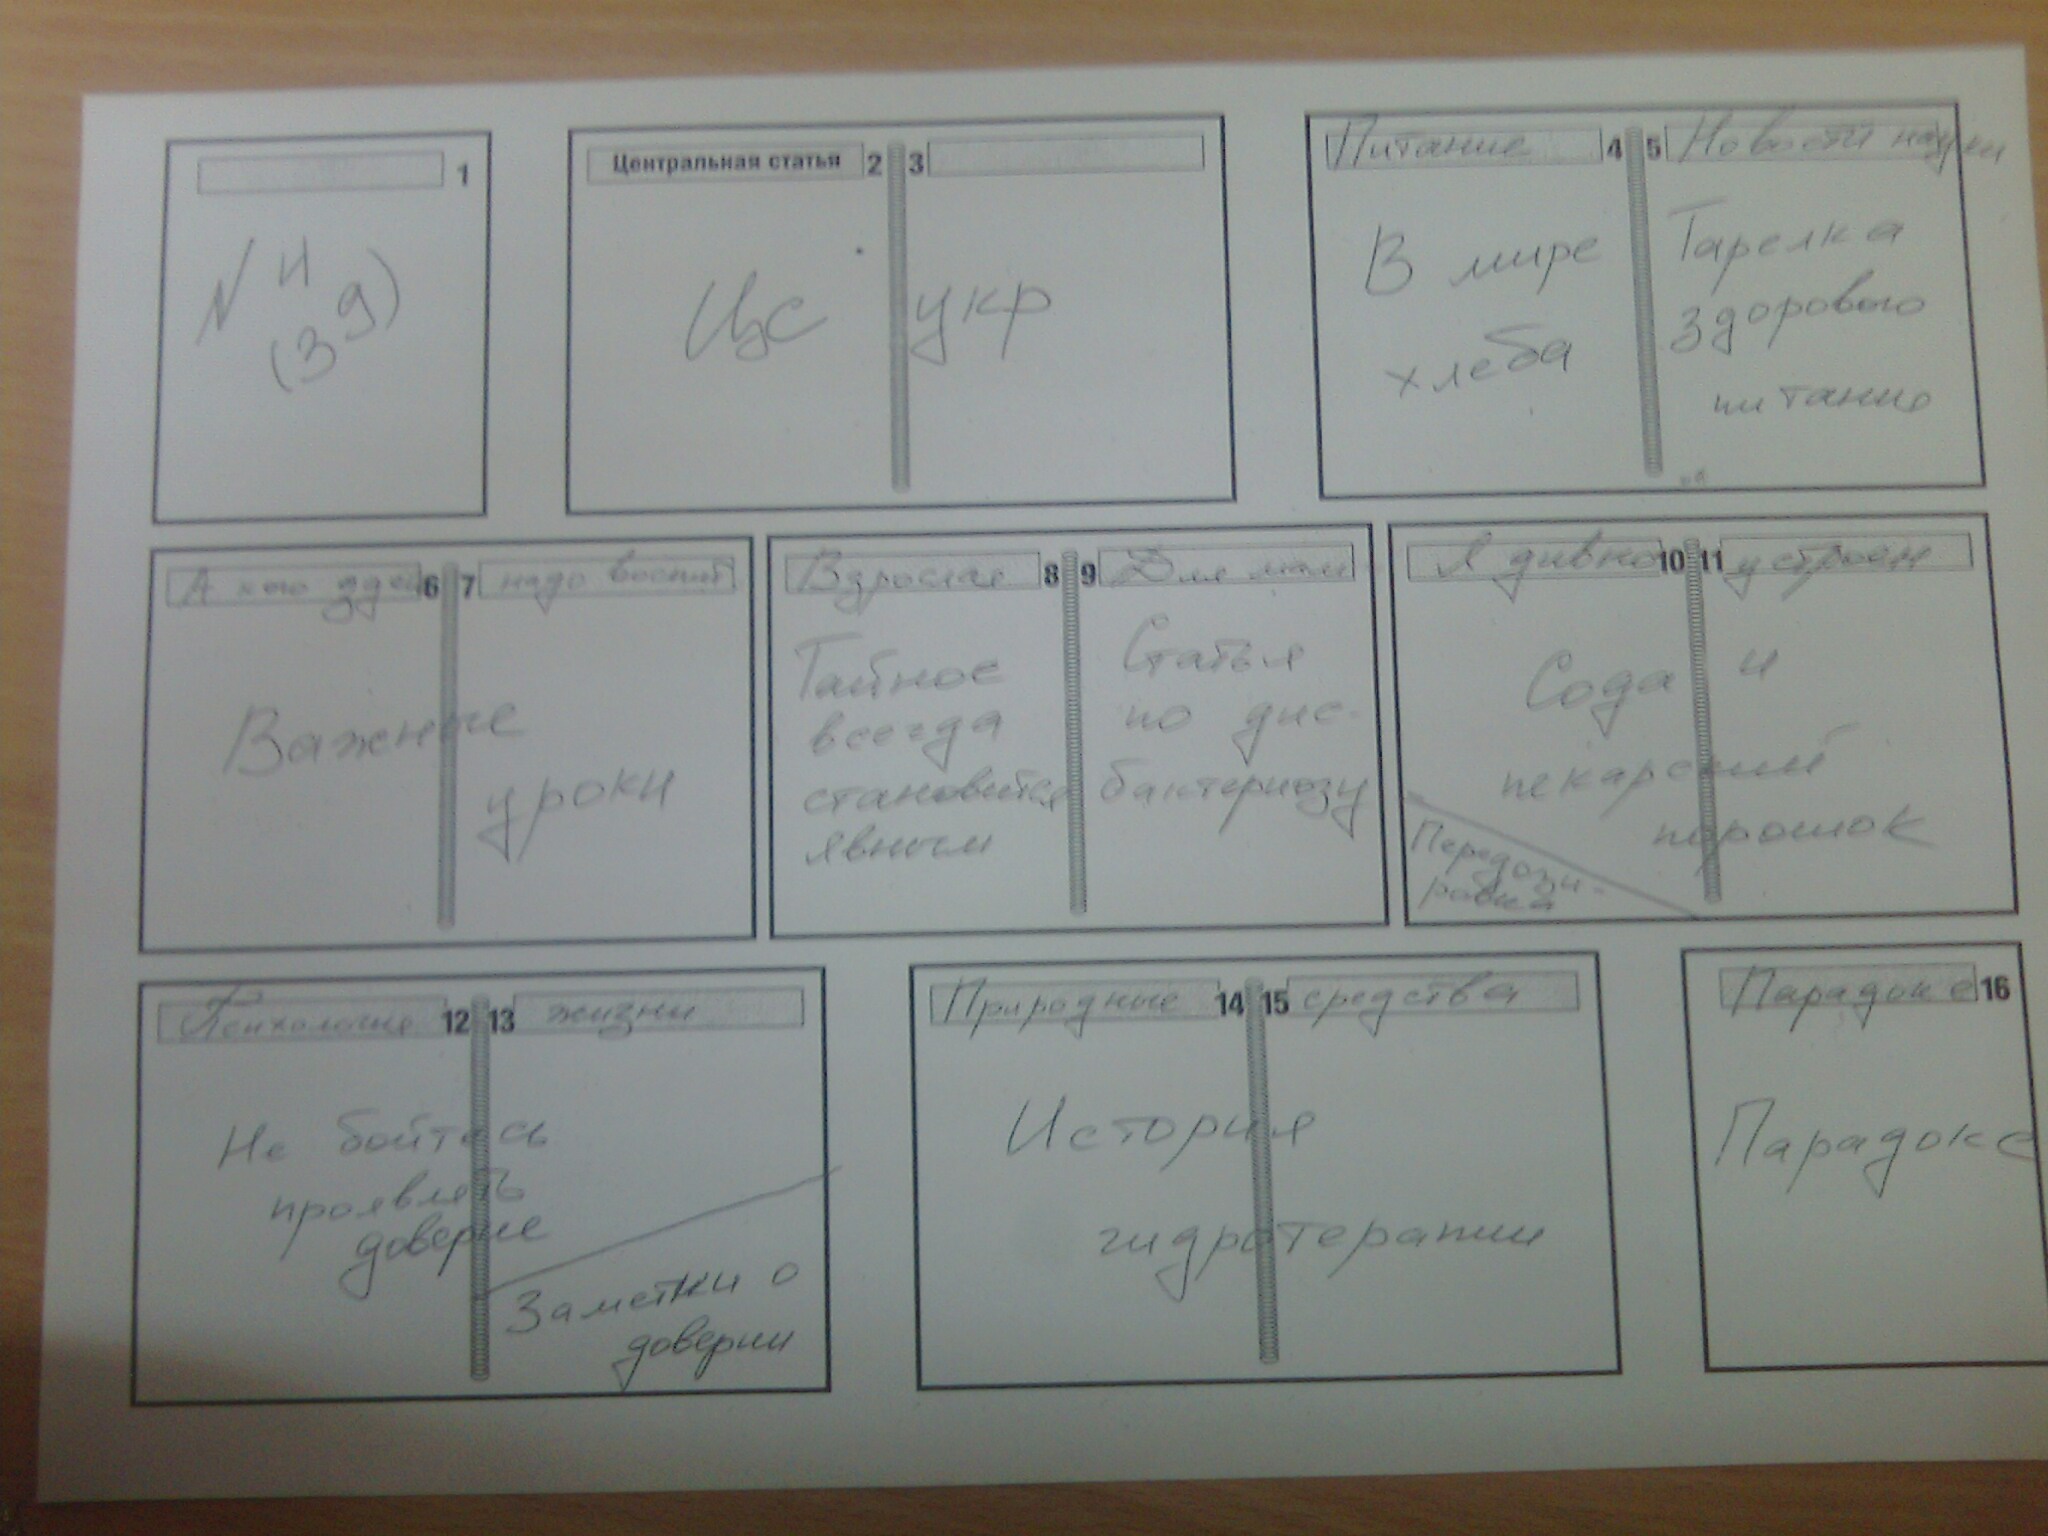 1
N 4
(39)
Центральная статья 2 3
Цс укр
Питание 4 5 Новости науки
В мире
хлеба
Тарелка
здорового
питание
А кого 6 7 надо воспит
Важные
уроки
Взрослая 8 9 Для мам
Тайное
всегда
становится
явным
Статья
по дис-
бактериозу
Я дивно 10 11 устроен
Сода и
пекарский
порошок
Передози-
ровка
Психология 12 13 жизни
Не бойтесь
проявлять
доверие
Заметки о
доверии
Природные 14 15 средства
История
гидротерапии
Парадокс 16
Парадокс